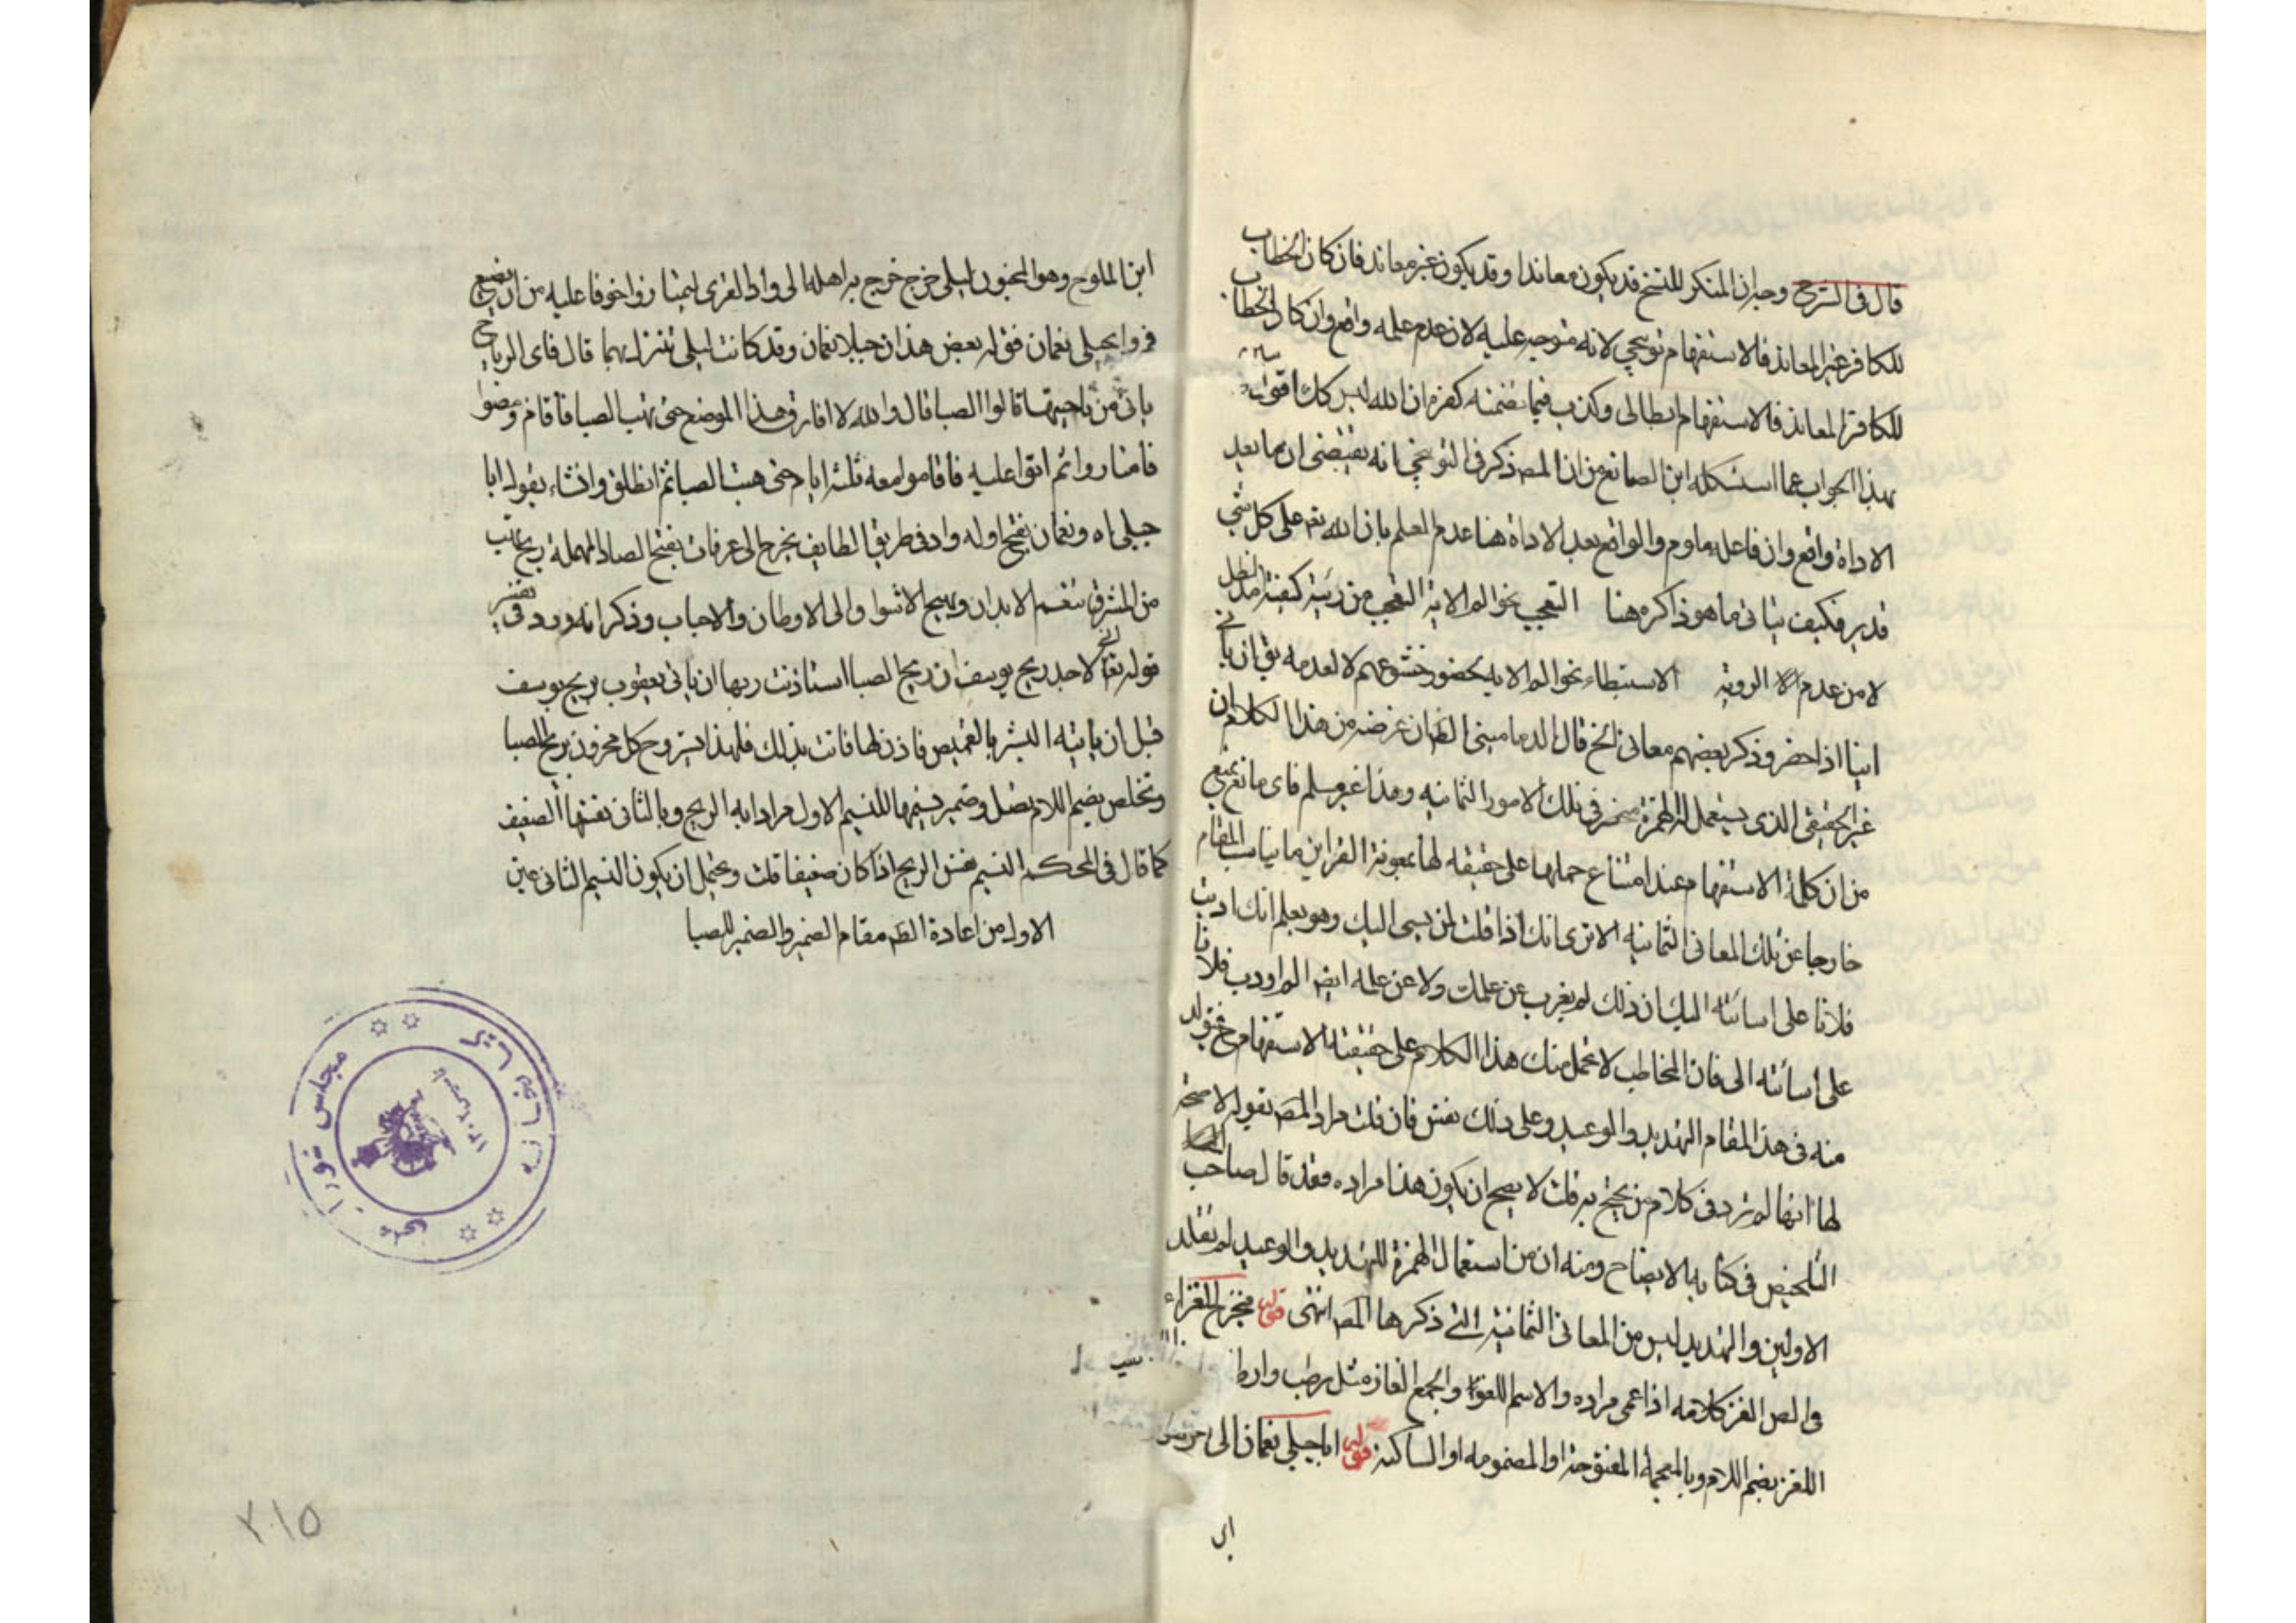 قال فى الشرح وجه ان المنكر للنسخ قد يكون معاندا وقد يكون غير معاند فان كان الخطاب
للكافر غير المعاند فالاستفهام توبيخى لانه متوجه عليه لان عدم علمه واقع وان كان الخطاب
للكافر المعاند فالاستفهام ابطالى وكذب فيما تضمنه كفره ان الله ليس كك اقول
بهذا الجواب عما استشكله ابن الصائغ من ان المصـ ذكر فى التوبيخى انه يقتضى ان ما بعد
الاداة واقع وان فاعله ملوم والواقع بعد الاداة هنا عدم العلم بان الله تعـ على كل شئ
قدير فكيف يتاتى ما هو ذاكره هنا التعجب نحو الم الاية التعجب من رئية كيفية مد الظل
لا من عدم الرؤية الاستبطاء نحو الم الاية بحضور خشوعهم لا لعدمه يق ان يأنى
انيا اذا حضر وذكر بعضهم معانى الخ قال الدمامينى الظ ان غرضه من هذا الكلام ان
غير الحقيقى الذى يستعمل الهمزة منحصر فى تلك الامور الثمانية وهذا غير مسلم فاى مانع يمنع
من ان كلمة الاستفهام عند امتناع حملها على حقيقه لها بمعونة القراين ما يناسب المقام
خارجا عن تلك المعانى الثمانيه الا ترى انك اذا قلت لمن يسئ اليك وهو يعلم انك ادبت
فلانا على اسائته اليك ان ذلك لم يغرب عن علمك ولا عن علمه ايضـ الم اودب فلانا
على اسائته الى فان المخاطب لا يحمل منك هذا الكلام على حقيقة الاستفهام ح فتولد
منه فى هذ المقام التهديد والوعيد وعلى ذلك فقس فان قلت مراد المصـ بقوله لا صحة
لها انها لم ترد فى كلام من يحتج به قلت لا يصح ان يكون هذا مراده فقد قال صاحب
التلخيص فى كتابه الايضاح ومنه ان من استعمال الهمزة للتهديد والوعيد الم نهلك
الاولين والتهديد ليس من المعانى الثمانية التى ذكرها المصـ انتهى قوله
فى الص الغز كلامه اذا عمى مراده والاسم اللغز والجمع الغاز مثل رطب وارطاب
اللغز بضم اللام وبالمعجمة المفتوحة او المضمومه او الساكنة قوله ايا جبلى نعمان الى اخر
اى
ابن الملوح وهو المجنون ليلى خرج خرج به اهله الى وادى القرى ليمتاروا خوفا عليه من ان يضيع
فمروا بجبلى نعمان فق له بعض هذان جبلا نعمان وقد كانت ليلى تنزل بهما قال فاى الرياح
ياتى من ناحيتها قالوا الصبا قال والله لا افارق هذا الموضع حتى تهب الصبا فاقام ومضوا
فامتاروا ثم اتوا عليه فاقاموا معه ثلثة ايام حتى هبت الصبا ثم انطلق وانشاء يقول ايا
جبلى اه ونعمان بفتح اوله واد فى طريق الطايف يخرج الى عرفات بفتح الصاد المهملة ريح تهب
من المشرق تنعم الابدان وتهيج الاشواق الى الاوطان والاحباب وذكر انه ورد فى تفسير
قوله تعا انى لاجد ريح يوسف ان ريح الصبا استاذنت ربها ان ياتى يعقوب بريح يوسف
قبل ان ياتيه البشير بالقميص فاذن لها فاتت بذلك فلهذا يستروح كل محزون بريح الصبا
وتخلص بضم اللام تصل وضمير نسيمها للنسيم الاول مرادا به الريح وبالثانى نفسها الضعيف
كما قال فى المحكم النسيم نفس الريح اذا كان ضعيفا قلت ويحتمل ان يكون النسيم الثانى عين
الاول من اعادة الظـ مقام الضمير والضمير للصبا
مجلس شوراى ملى
٢١٥